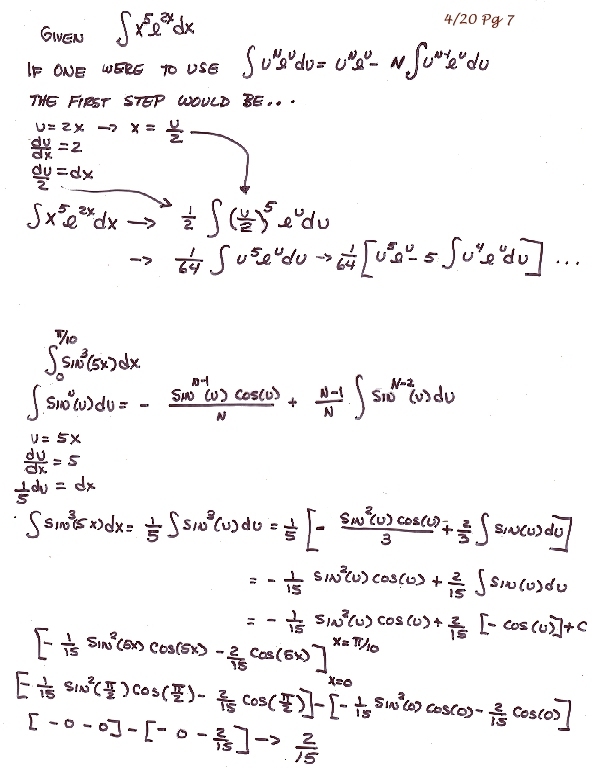 4/20 Pg 7
GIVEN ∫x⁵e²ˣdx
IF ONE WERE TO USE ∫uᴺeᵘdu = uᴺeᵘ - N∫uᴺ⁻¹eᵘdu
THE FIRST STEP WOULD BE...
u = 2x → x = u/2
du/dx = 2
du/2 = dx
∫x⁵e²ˣdx → 1/2 ∫(u/2)⁵ eᵘdu
→ 1/64 ∫u⁵eᵘdu → 1/64 [u⁵eᵘ - 5∫u⁴eᵘdu] ...
∫₀^(π/10) sin³(5x)dx
∫sinᴺ(u)du = - sinᴺ⁻¹(u) cos(u)/N + N-1/N ∫sinᴺ⁻²(u)du
u = 5x
du/dx = 5
1/5 du = dx
∫sin³(5x)dx = 1/5 ∫sin³(u)du = 1/5 [- sin²(u) cos(u)/3 + 2/3 ∫sin(u)du]
= - 1/15 sin²(u) cos(u) + 2/15 ∫sin(u)du
= - 1/15 sin²(u) cos(u) + 2/15 [- cos(u)] + C
[- 1/15 sin²(5x) cos(5x) - 2/15 cos(5x)] x=π/10 x=0
[- 1/15 sin²(π/2) cos(π/2) - 2/15 cos(π/2)] - [- 1/15 sin²(0) cos(0) - 2/15 cos(0)]
[-0-0] - [-0 - 2/15] → 2/15